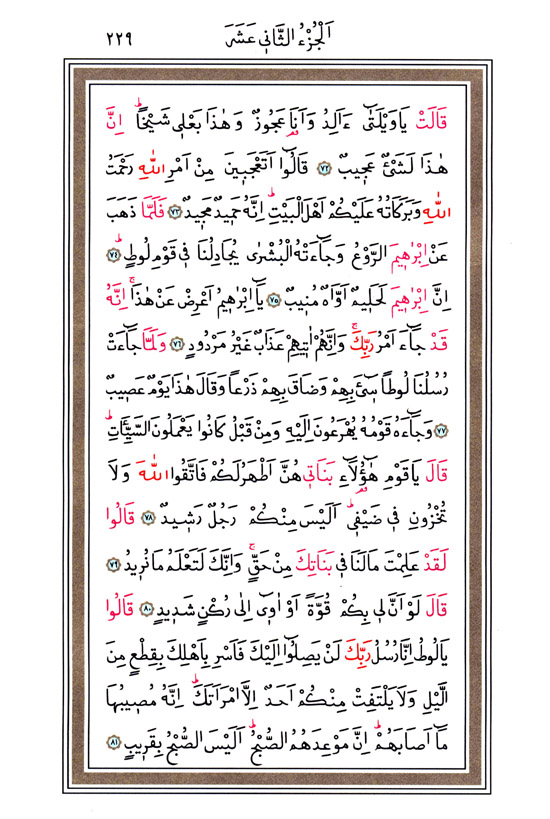 اَلْجُزْءُ الثَّانٖى عَشَرَ ٢٢٩
قَالَتْ يَا وَيْلَتٰٓى ءَاَلِدُ وَاَنَا۬ عَجُوزٌ وَهٰذَا بَعْلٖى شَيْخًاۜ اِنَّ
هٰذَا لَشَىْءٌ عَجٖيبٌ ﴿٧٢﴾ قَالُٓوا اَتَعْجَبٖينَ مِنْ اَمْرِ اللّٰهِ رَحْمَتُ
اللّٰهِ وَبَرَكَاتُهُ عَلَيْكُمْ اَهْلَ الْبَيْتِۜ اِنَّهُ حَمٖيدٌ مَجٖيدٌ ﴿٧٣﴾ فَلَمَّا ذَهَبَ
عَنْ اِبْرٰهٖيمَ الرَّوْعُ وَجَٓاءَتْهُ الْبُشْرٰى يُجَادِلُنَا فٖى قَوْمِ لُوطٍۜ ﴿٧٤﴾
اِنَّ اِبْرٰهٖيمَ لَحَلٖيمٌ اَوَّاهٌ مُنٖيبٌ ﴿٧٥﴾ يَٓا اِبْرٰهٖيمُ اَعْرِضْ عَنْ هٰذَاۚ اِنَّهُ
قَدْ جَٓاءَ اَمْرُ رَبِّكَۚ وَاِنَّهُمْ اٰتٖيهِمْ عَذَابٌ غَيْرُ مَرْدُودٍ ﴿٧٦﴾ وَلَمَّا جَٓاءَتْ
رُسُلُنَا لُوطًا سٖٓىءَ بِهِمْ وَضَاقَ بِهِمْ ذَرْعًا وَقَالَ هٰذَا يَوْمٌ عَصٖيبٌ
﴿٧٧﴾ وَجَٓاءَهُ قَوْمُهُ يُهْرَعُونَ اِلَيْهِ وَمِنْ قَبْلُ كَانُوا يَعْمَلُونَ السَّيِّـَٔاتِۜ
قَالَ يَا قَوْمِ هٰٓؤُ۬لَٓاءِ بَنَاتٖى هُنَّ اَطْهَرُ لَكُمْ فَاتَّقُوا اللّٰهَ وَلَا
تُخْزُونِ فٖى ضَيْفٖىۜ اَلَيْسَ مِنْكُمْ رَجُلٌ رَشٖيدٌ ﴿٧٨﴾ قَالُوا
لَقَدْ عَلِمْتَ مَا لَنَا فٖى بَنَاتِكَ مِنْ حَقٍّۚ وَاِنَّكَ لَتَعْلَمُ مَا نُرٖيدُ ﴿٧٩﴾
قَالَ لَوْ اَنَّ لٖى بِكُمْ قُوَّةً اَوْ اٰوٖٓى اِلٰى رُكْنٍ شَدٖيدٍ ﴿٨٠﴾ قَالُوا
يَا لُوطُ اِنَّا رُسُلُ رَبِّكَ لَنْ يَصِلُٓوا اِلَيْكَ فَاَسْرِ بِاَهْلِكَ بِقِطْعٍ مِنَ
الَّيْلِ وَلَا يَلْتَفِتْ مِنْكُمْ اَحَدٌ اِلَّا امْرَاَتَكَۜ اِنَّهُ مُصٖيبُهَا
مَٓا اَصَابَهُمْۜ اِنَّ مَوْعِدَهُمُ الصُّبْحُۜ اَلَيْسَ الصُّبْحُ بِقَرٖيبٍ ﴿٨١﴾